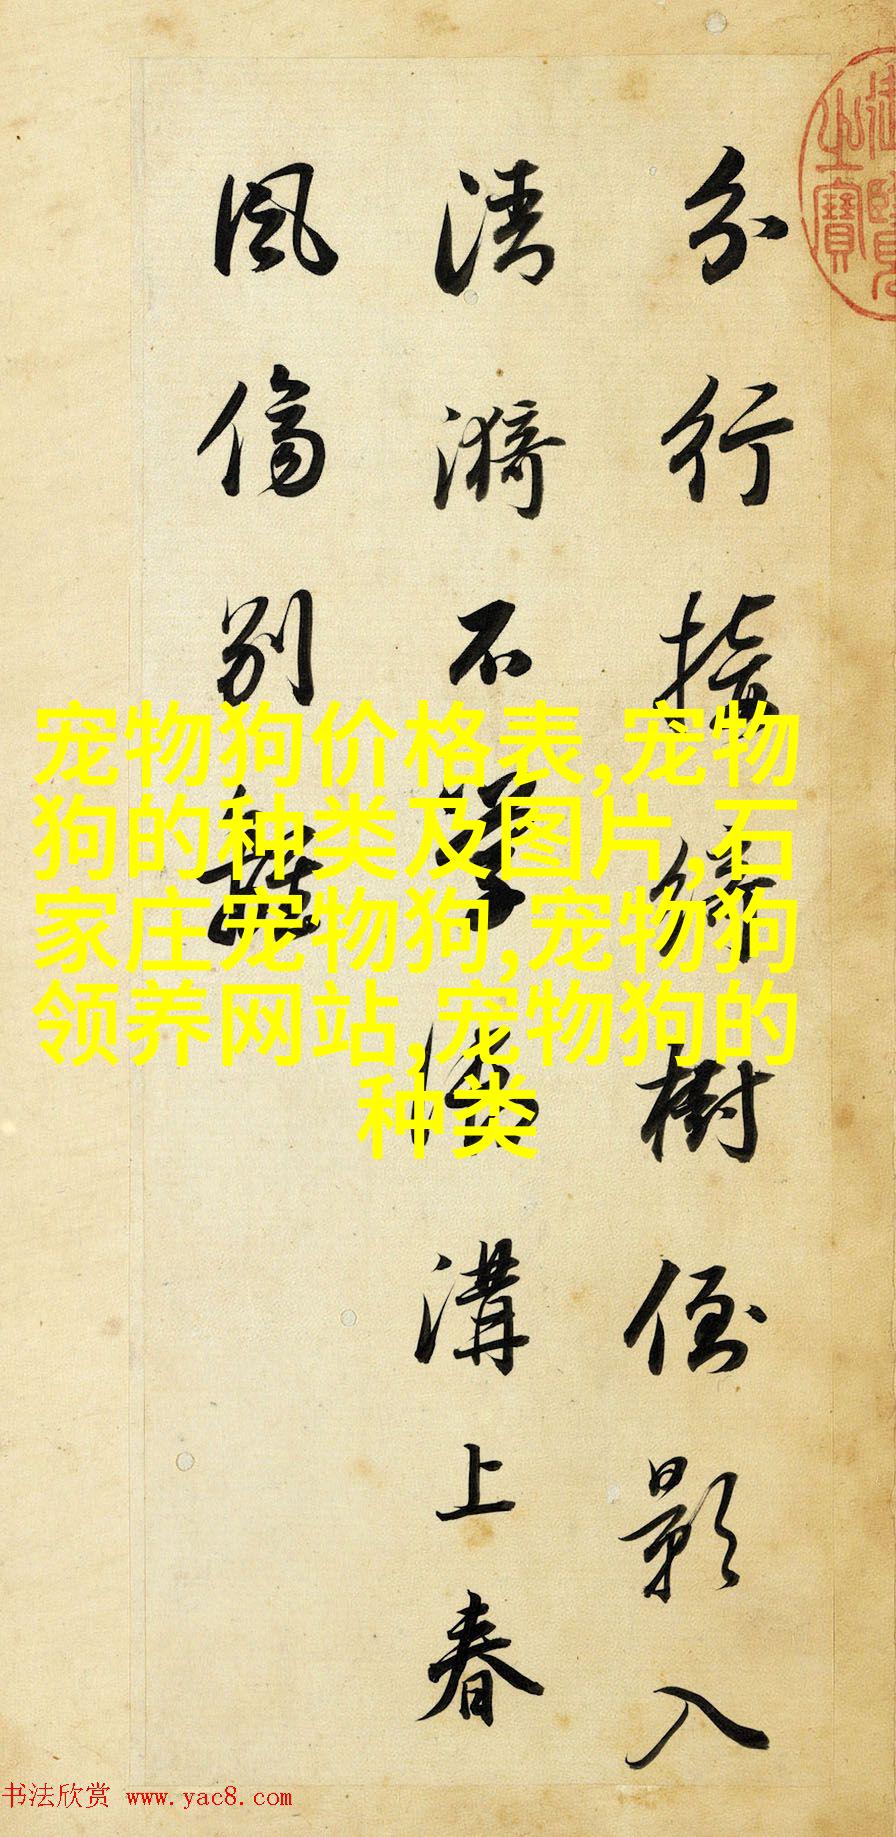 分行接綺樹倒影入
清漪不學御溝上春
風傷別離
宠物狗价格表,宠物
狗的种类及图片,石
家庄宠物狗,宠物狗
领养网站,宠物狗的
种类
书法欣赏 www.yac8.com